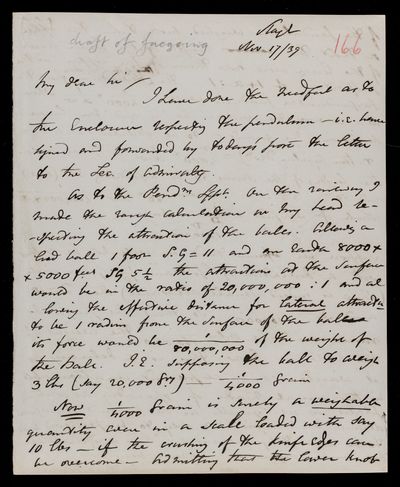 draft of foregoing
Slough
Nov 17/39
166
My dear Sir /
I have done the needful as to
the Enclosure respecting the pendulum – i.e. have
signed and forwarded by todays post the letter
to the Sec. of Admiralty.
As to the Pend^m Expt. On the railway I
made the rough calculation in my head re-
-specting the attraction of the balls. Allowing a
lead ball 1 foot S.G = 11 and an Earth 8000 x
x 5000 feet SG 5½ the attractions at the surface
would be in the ratio of 20,000,000 : 1 and al-
-lowing the effective distance for lateral attractn
to be 1 radius from the surface of the ball
its force would be 1/80,000,000 of the weight of
the ball. I.E. supposing the ball to weigh
3 lbs (say 20,000 Grs) 1/4000 Grain
Now 1/4000 Grain is surely a weighable
quantity even in a scale loaded with say
10 lbs – if the crushing of the knife edges can
be overcome – Admitting that the lower knob